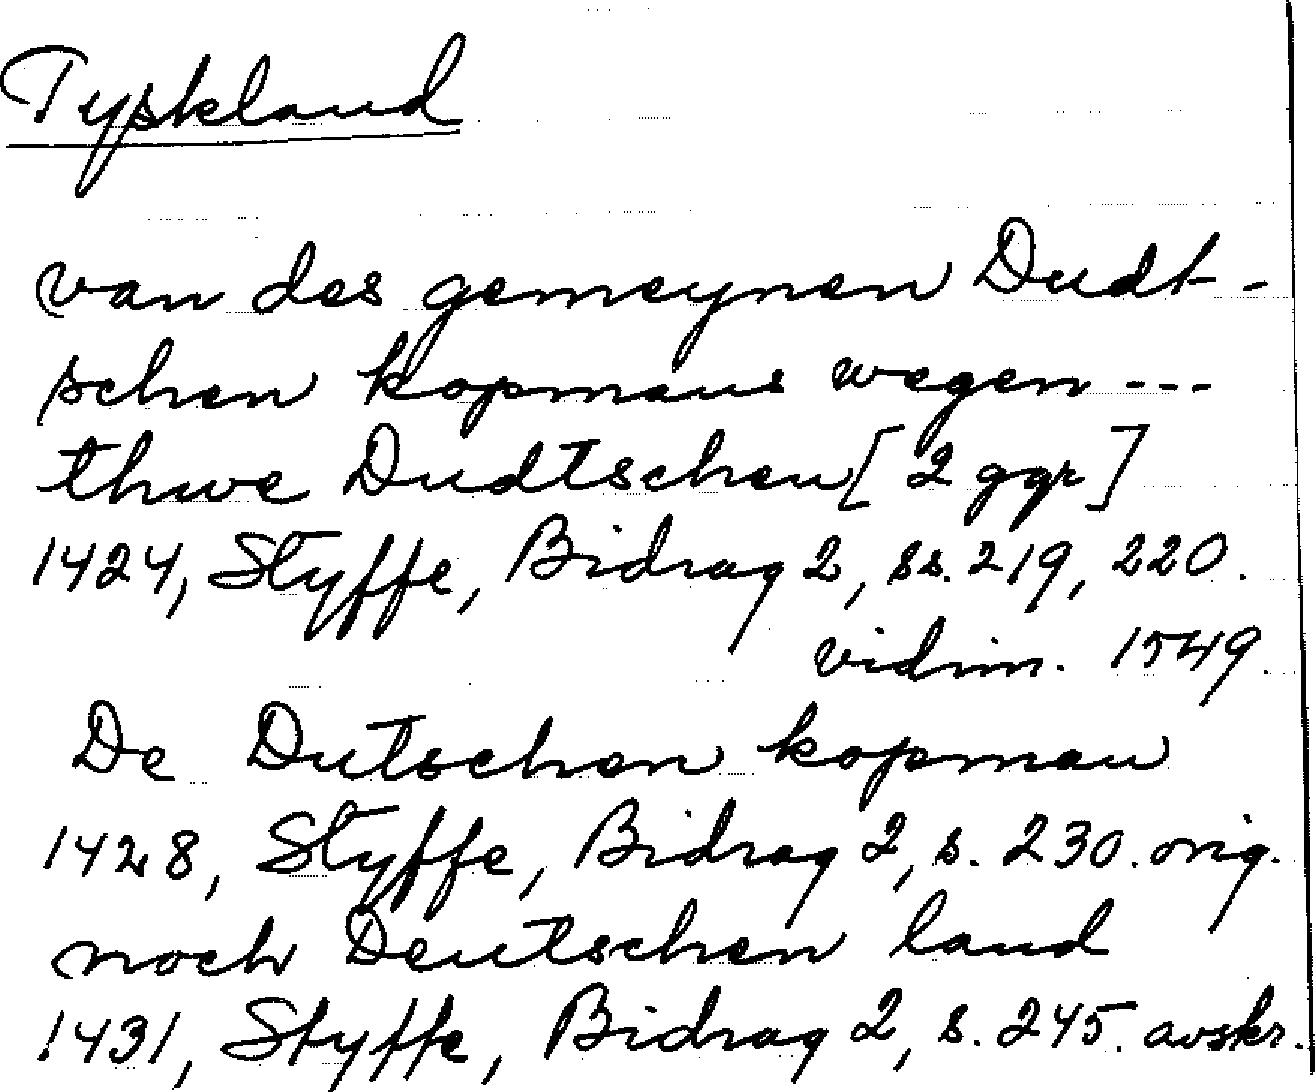 Tyskland
van des gemeynen Dudt-
schen kopmans wegen ---
thwe Dudtschen [2 ggr]
1424, Styffe, Bidrag 2, ss. 219, 220.
vidim. 1549.
De Dutschen kopman
1428, Styffe, Bidrag 2, s. 230. orig.
noch Deutschen land
1431, Styffe, Bidrag 2, s. 245. avskr.